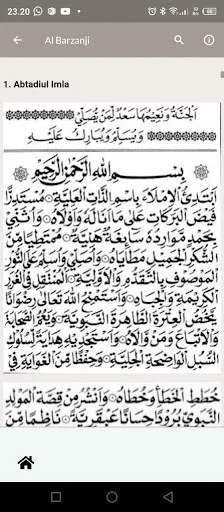 23.20
Al Barzanji
1. Abtadiul Imla
اَلْجَنَّةُ وَنَعِيْمُهَا سَعْدٌ لِمَنْ يُصَلِّيْ
وَيُسَلِّمُ وَيُبَارِكُ عَلَيْهِ
بِسْمِ اللهِ الرَّحْمٰنِ الرَّحِيْمِ
اَبْتَدِئُ الْاِمْلَاءَ بِاسْمِ الذَّاتِ الْعَلِيَّةِ مُسْتَدِرًّا
فَيْضَ الْبَرَكَاتِ عَلٰى مَا اَنَالَهُ وَاَوْلَاهُ وَاُثَنِّيْ
بِحَمْدٍ مَوَارِدُهُ سَآئِغَةٌ هَنِيَّةٌ مُمْتَطِيًا مِنَ
الشُّكْرِ الْجَمِيْلِ مَطَايَاهُ وَاُصَلِّيْ وَاُسَلِّمُ عَلَى النُّوْرِ
الْمَوْصُوْفِ بِالتَّقَدُّمِ وَالْاَوَّلِيَّةِ الْمُنْتَقِلِ فِى الْغُرَرِ
الْكَرِيْمَةِ وَالْجِبَاهِ وَاَسْتَمْنِحُ اللهَ تَعَالٰى رِضْوَانًا
يَخُصُّ الْعِتْرَةَ الطَّاهِرَةَ النَّبَوِيَّةَ وَيَعُمُّ الصَّحَابَةَ
وَالْاَتْبَاعَ وَمَنْ وَالَاهُ وَاَسْتَجْدِيْهِ هِدَايَةً لِسُلُوْكِ
السُّبُلِ الْوَاضِحَةِ الْجَلِيَّةِ وَحِفْظًا مِنَ الْغَوَايَةِ فِيْ
خِطَطِ الْخَطَأِ وَخُطَاهُ وَاَنْشُرُ مِنْ قِصَّةِ الْمَوْلِدِ
النَّبَوِيِّ بُرُوْدًا حِسَانًا عَبْقَرِيَّةً نَاظِمًا مِنَ